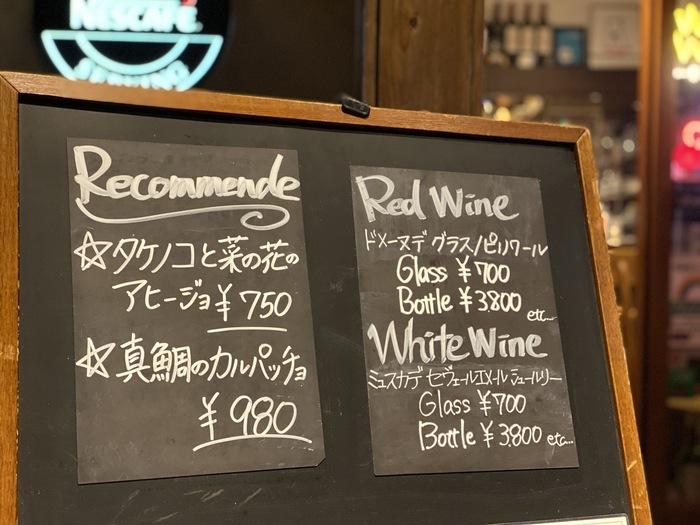 NESCAFÉ
Recommende
☆タケノコと菜の花の
アヒージョ ¥750
☆真鯛のカルパッチョ
¥980
Red Wine
ドメーヌデグラス/ピノワール
Glass ¥700
Bottle ¥3,800 etc...
White Wine
ミュスカデ セヴェールエメール シュールリー
Glass ¥700
Bottle ¥3,800 etc...